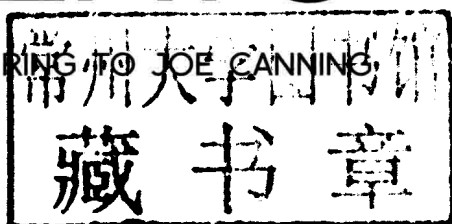 RING TO JOE CANNING
常州大学图书馆
藏书章